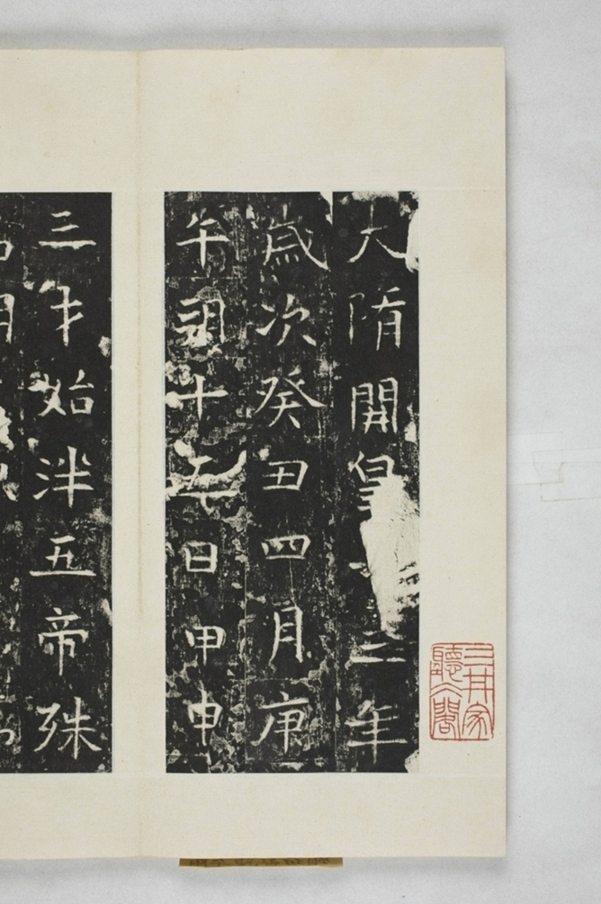 大隋開皇三年
歲次癸丑四月庚
午朔十五日甲申
三才始泮五帝殊
三井家
聽冰閣